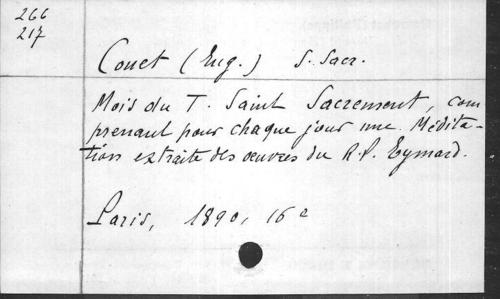 266
217
Couet (Eug.) S. Sacr.
Mois du T. Saint Sacrement, com
prenant pour chaque jour une Médita-
tion extraite des œuvres du R. P. Eymard.
Paris, 1890, 16º